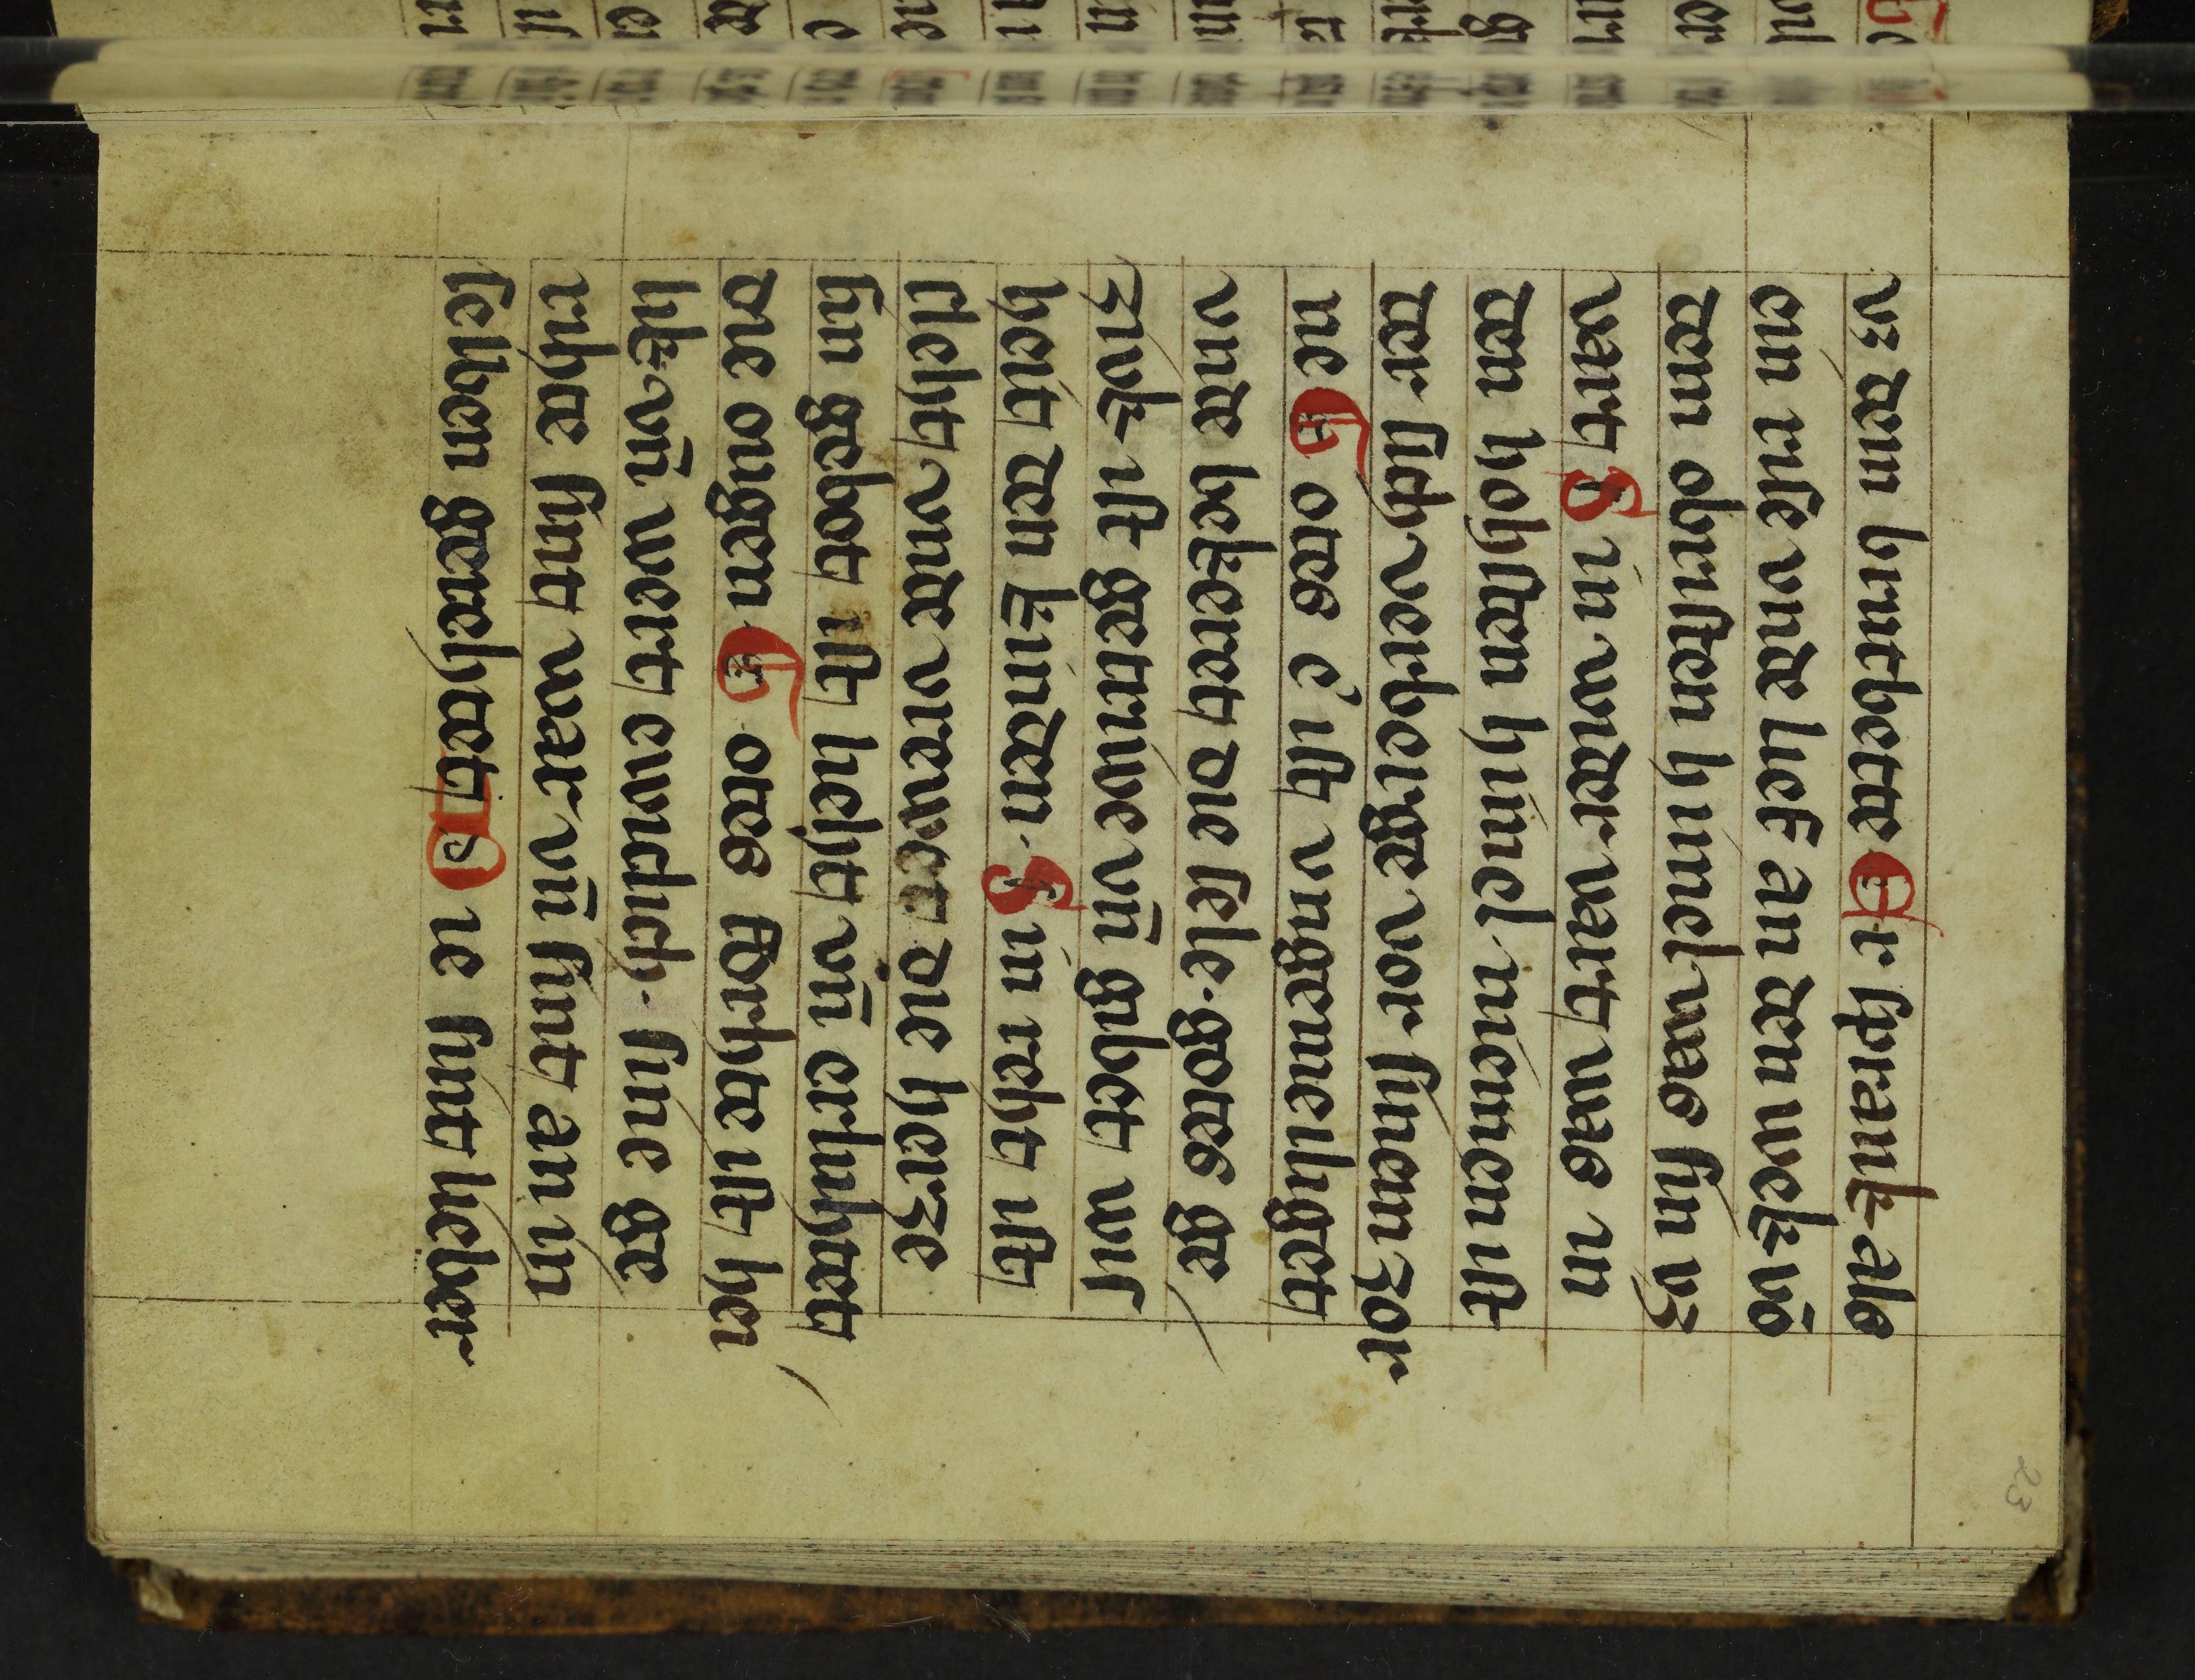 23
vz dem brutbette Er sprank als
ein rise vnde lief an den wek võ
dem obristen himel was sin vz
vart Sin widervart was in
den hohsten himel niemen ist
der sich verberge vor sinem zor
ne Gotes e ist vngemeiliget
vnd bekeret die sele. gotes ge
zivk ist getriwe vñ gibet wis
heit den kinden. Sin reht ist
sleht vnd vrewet die herze
sin gebot ist lieht vñ erluhtet
die ougen Gotes vorhte ist hei
lik vñ wert ewiclich. sine ge
rihte sint war vñ sint an in
selben gerehtet Sie sint lieber